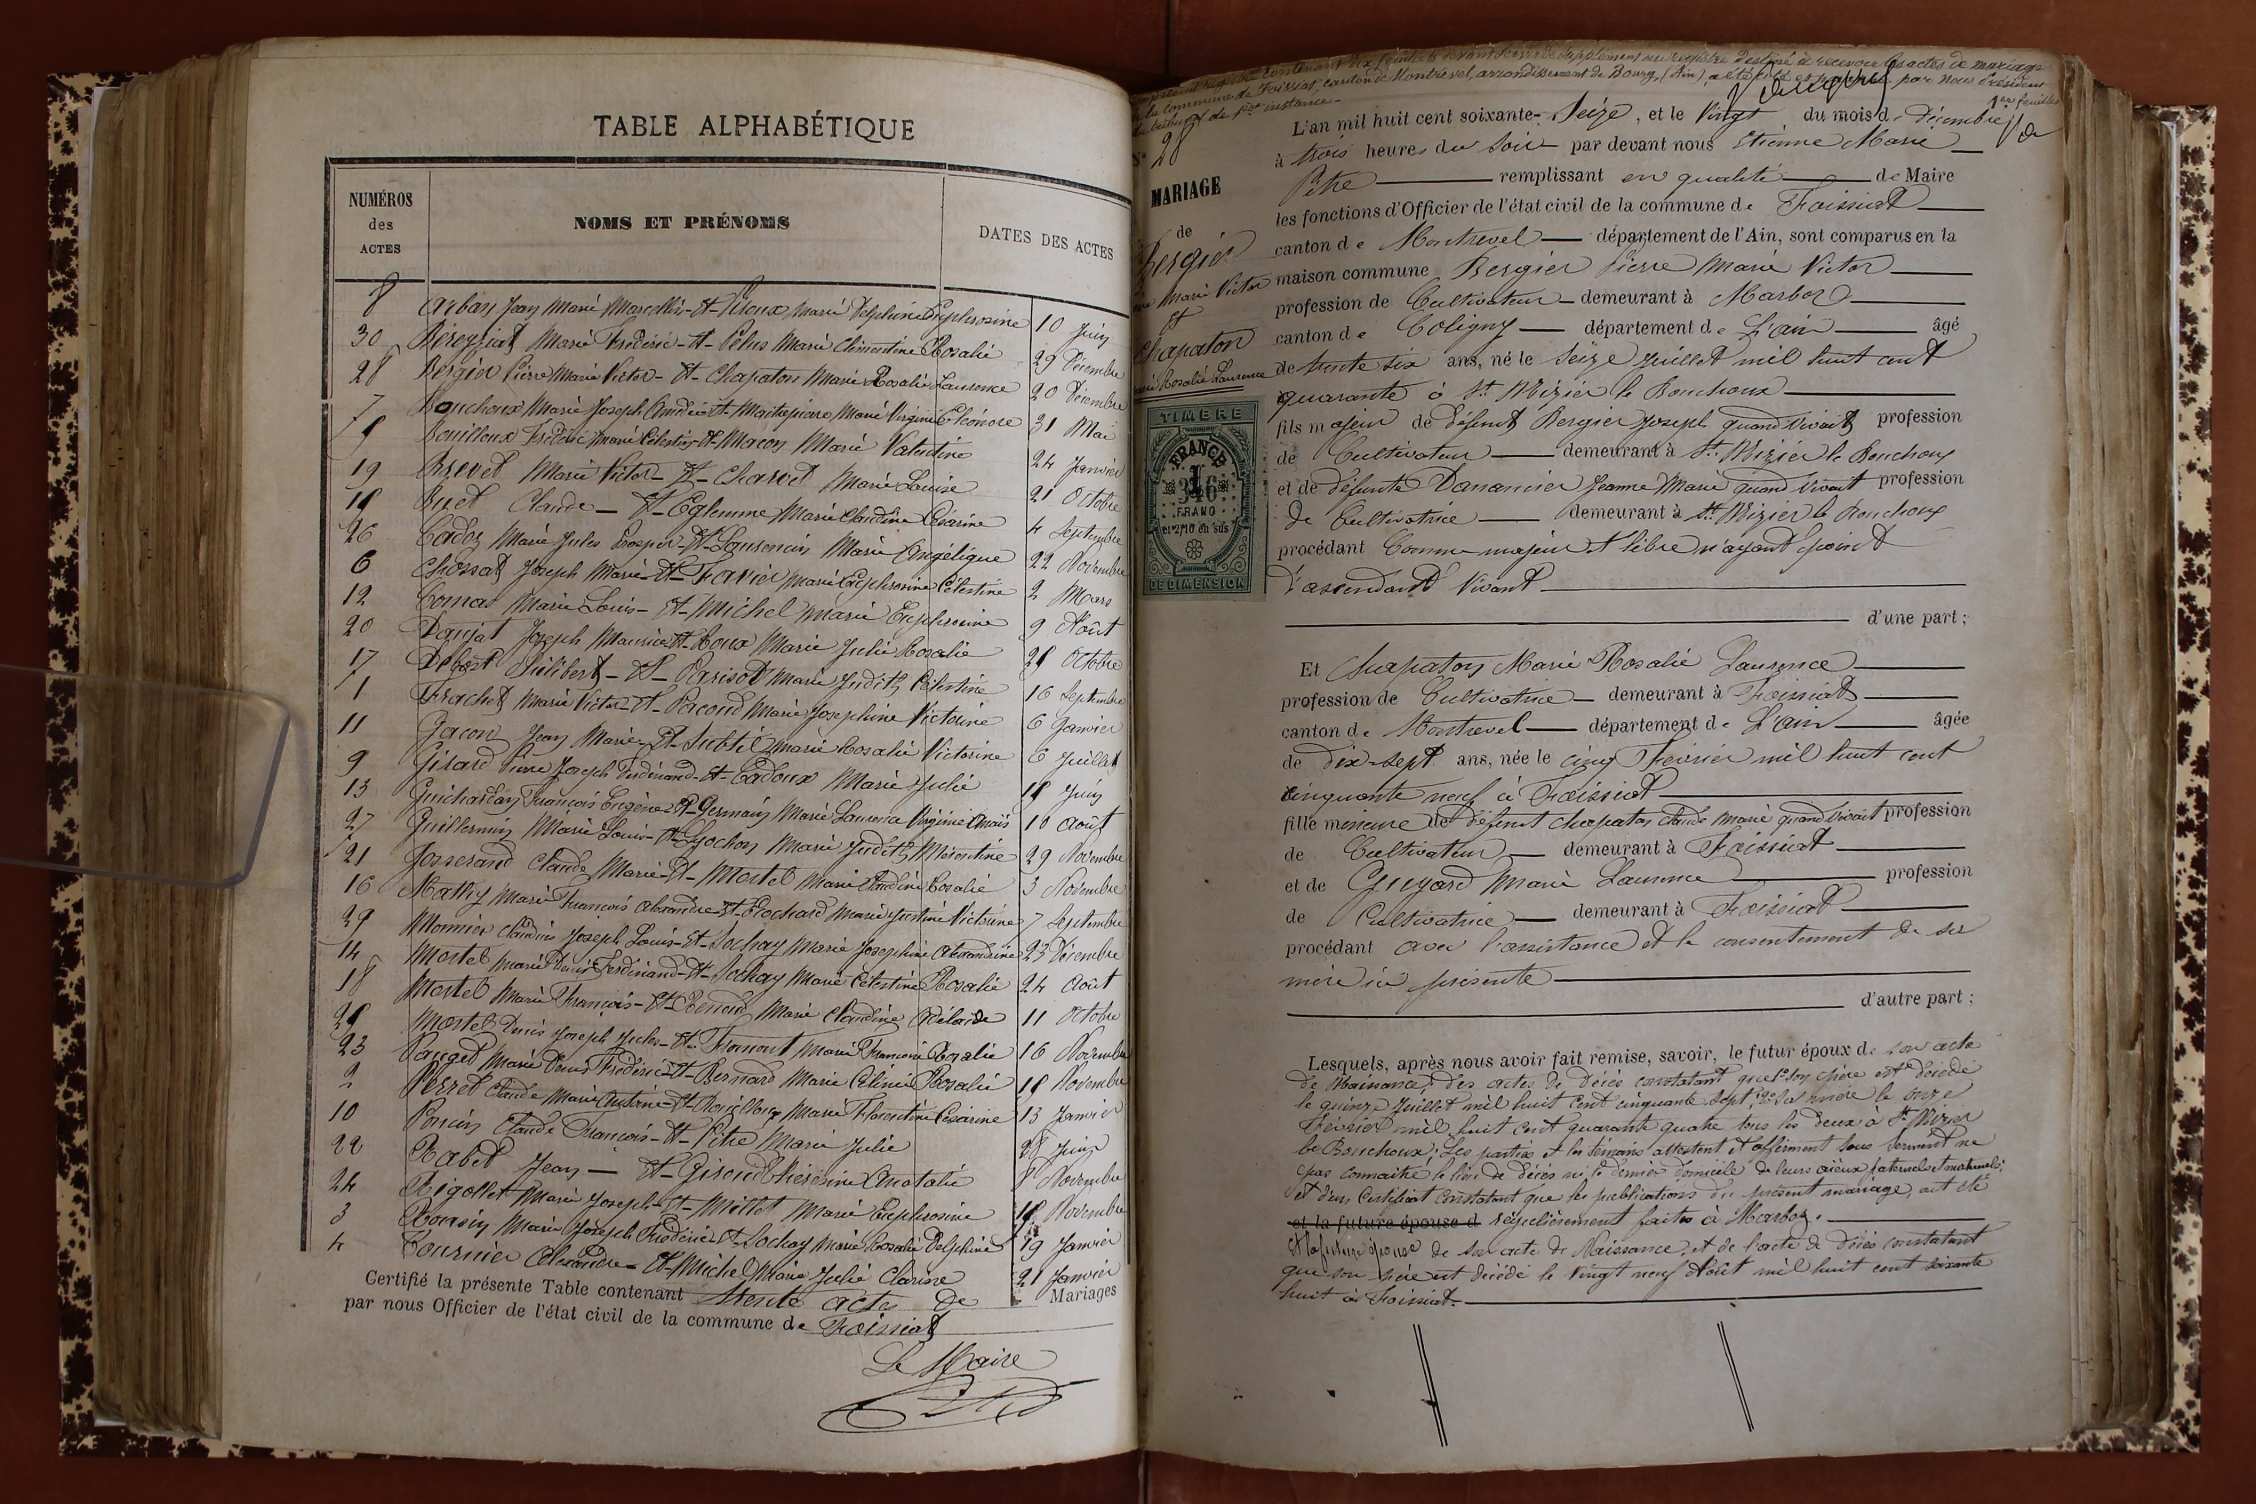 TABLE ALPHABÉTIQUE
NUMÉROS
des
ACTES
NOMS ET PRÉNOMS
DATES DES ACTES
8 Marie Delphine Euphrosine 10 Juin
30 Béréyziat Marie Frédéric - et - Pélus Marie Clémentine Rosalie 29 Décembre
28 Bergier Pierre Marie Victor - et - Chapaton Marie Rosalie Laurence 20 Décembre
7 Bouchoux Marie Joseph Amédée et Marie Virginie Eléonore 31 Mai
5 Bouilloux Frédéric Marie Célestin - et - Macon Marie Valentine 24 Janvier
19 Brevet Marie Victor - et - Charvet Marie Louise 21 Octobre
15 Buet Claude - et - Marie Claudine Césarine 4 Septembre
26 Cadoz Marie Jules Prosper - et - Laurencin Marie Angélique 22 Novembre
6 Chossat Joseph Marie - et - Favier Marie Euphrosine Célestine 2 Mars
12 Comas Marie Louis - et - Michel Marie Euphrosine 9 Août
20 Joseph Maurice et Roux Marie Julie Rosalie 21 Octobre
17 Debost Philibert - et - Parisot Marie Judith Célestine 16 Septembre
1 Frachet Marie Victor - et - Pacoud Marie Josephine Victorine 6 Janvier
11 Gacon Jean Marie - et - Subtil Marie Rosalie Victorine 6 Juillet
9 Girard Pierre Joseph Ferdinand - et - Cadoux Marie Julie Juin
13 Guichardan François Eugène - et - Germain Marie Laurence Virginie Anaïs 10 Août
27 Guillermin Marie Louis - et - Marie Judith 29 Novembre
21 Josserand Claude Marie - et - Mortel Marie Claudine Rosalie 3 Novembre
16 Mathy Marie François Alexandre - et - Brochard Marie Justine Victorine 7 Septembre
29 Monnier Claudius Joseph Louis - et - Sochay Marie Josephine Alexandrine 23 Décembre
14 Mortel Marie Denis Ferdinand - et - Sochay Marie Célestine Rosalie 24 Août
18 Mortel Marie François - et - Renoud Marie Claudine Adélaïde 11 Octobre
25 Mortel Denis Joseph Jules - et - Fromont Marie Françoise Rosalie 16 Novembre
23 Pauget Marie Denis Frédéric - et - Bernard Marie Céline Rosalie Novembre
2 Perret Claude Marie Antoine - et - Bouilloux Marie Florentine Césarine 13 Janvier
10 Poncin Claude François - et - Pitre Marie Julie 28 Juin
22 Rabet Jean - et - Giroud Thérésine Anatalie 8 Novembre
24 Rigollet Marie Joseph - et - Millet Marie Euphrosine Novembre
3 Roussin Marie Joseph Frédéric - et - Sochay Marie Rosalie Delphine 19 Janvier
4 Tournier Alexandre - et - Michel Marie Julie Clarisse 21 Janvier
Certifié la présente Table contenant trente actes de Mariages
par nous Officier de l'état civil de la commune de Foissiat
Le Maire
contenant dix feuillets servant de supplément au registre destiné à recevoir les actes de mariage
de la commune de Foissiat, canton de Montrevel, arrondissement de Bourg, (Ain), a été coté et paraphé par nous Président
du tribunal de 1ère instance.
1er feuillet
N° 28
MARIAGE
de
Bergier
Pierre Marie Victor
et
Chapaton
Marie Rosalie Laurence
TIMBRE
FRANCE
346
1
FRANC
et 2/10 en sus
DE DIMENSION
L'an mil huit cent soixante-Seize, et le Vingt du mois de Décembre
à trois heures du Soir par devant nous Etienne Marie
Pitre remplissant en qualité de Maire
les fonctions d'Officier de l'état civil de la commune de Foissiat
canton de Montrevel département de l'Ain, sont comparus en la
maison commune Bergier Pierre Marie Victor
profession de Cultivateur demeurant à Marboz
canton de Coligny département de L'ain âgé
de trente six ans, né le Seize Juillet mil huit cent
quarante à St Nizier le Bouchoux
fils majeur de défunt Bergier Joseph quand vivait profession
de Cultivateur demeurant à St Nizier le Bouchoux
et de défunte Danancier Jeanne Marie quand vivait profession
de Cultivatrice demeurant à St Nizier le Bouchoux
procédant Comme majeur et libre n'ayant point
d'ascendant Vivant
d'une part ;
Et Chapaton Marie Rosalie Laurence
profession de Cultivatrice demeurant à Foissiat
canton de Montrevel département de L'ain âgée
de dix-sept ans, née le cinq Février mil huit cent
cinquante neuf à Foissiat
fille mineure de défunt Chapaton Claude Marie quand vivait profession
de Cultivateur demeurant à Foissiat
et de Guyard Marie Laurence profession
de Cultivatrice demeurant à Foissiat
procédant avec l'assistance et le consentement de sa
mère ici présente
d'autre part ;
Lesquels, après nous avoir fait remise, savoir, le futur époux de son acte
de Naissance; Des actes de Décès constatant que 1° Son père est décédé
le quinze Juillet mil huit cent cinquante sept; 2° Sa mère le onze
Février mil huit cent quarante quatre tous les deux à St Nizier
le Bouchoux; Les parties et les témoins attestent et affirment sous serment ne
pas connaître le lieu de décès ni le dernier domicile de leurs aïeux paternels et maternels;
et d'un Certificat constatant que les publications du présent mariage, ont été
et la future épouse d régulièrement faites à Marboz.
et la future épouse de son acte de Naissance, et de l'acte de Décès constatant
que son père est décédé le Vingt neuf Août mil huit cent soixante
huit à Foissiat.